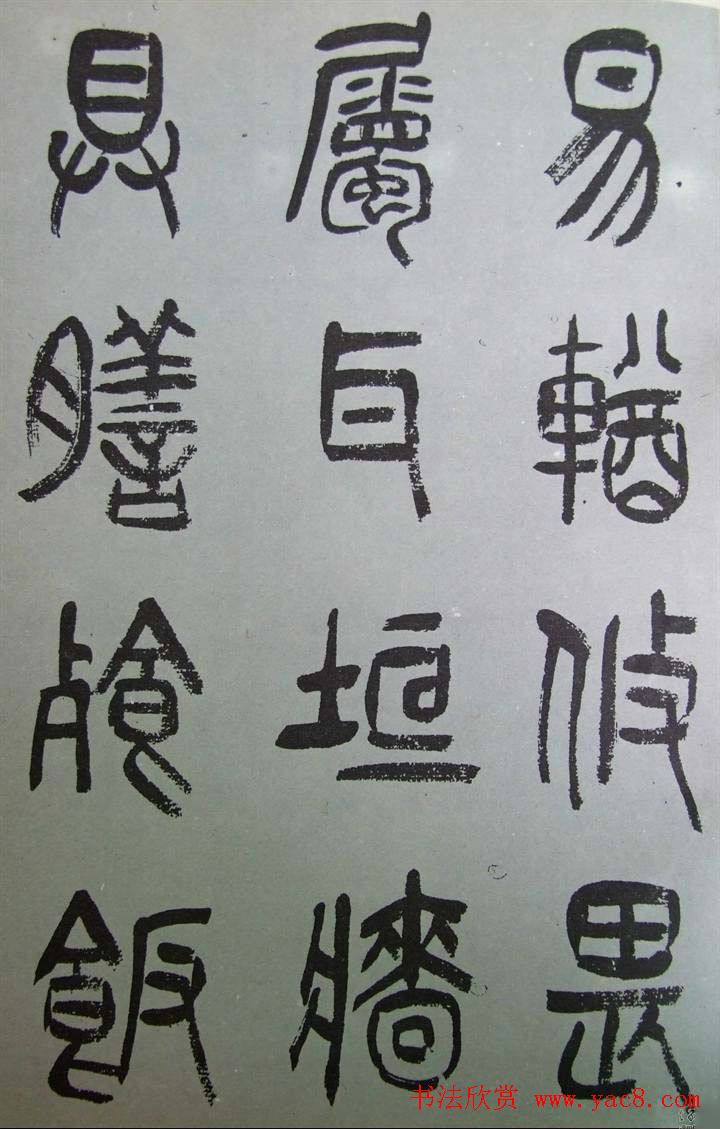 易輶攸畏
屬耳垣牆
具膳飡飯
书法欣赏 www.yac8.com